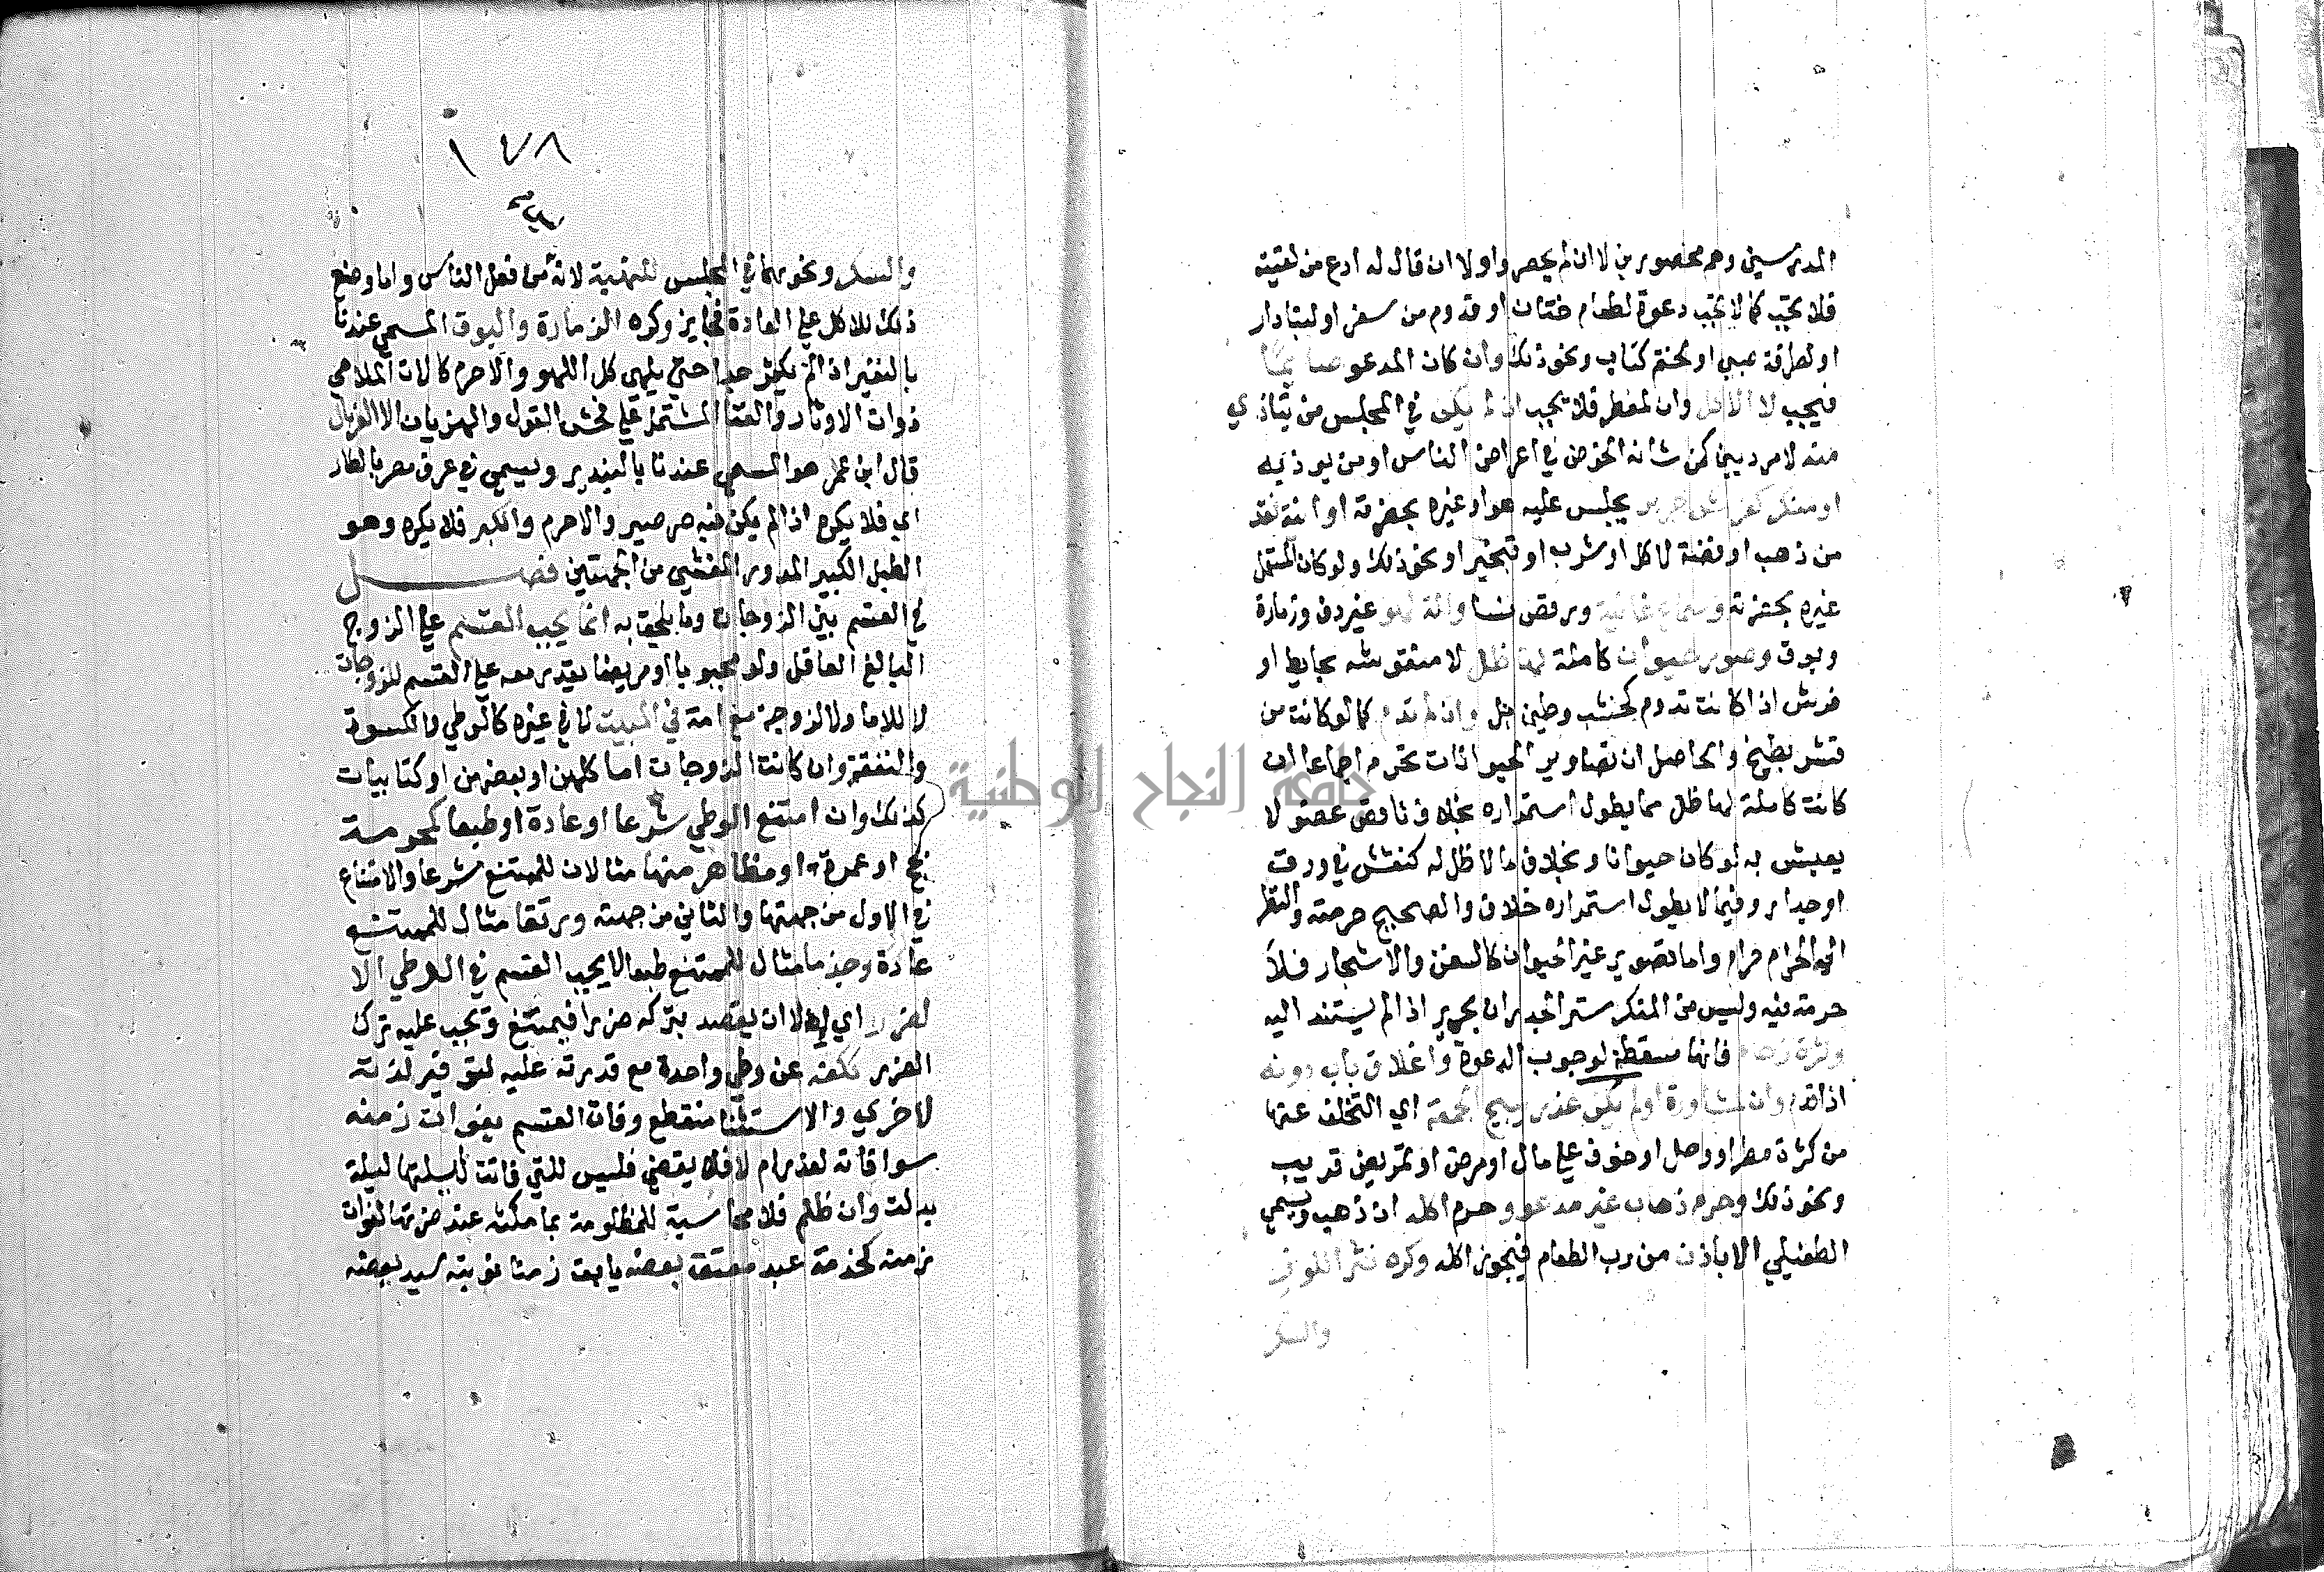 المدرسين وهم محصورين لا ان لم يحصروا ولا ان قال له ادع من لقيته
فلا تجب كما لا تجب دعوة لطعام ختان او قدوم من سفر او لبنا دار
او لطرقة صبي او لختم كتاب ونحو ذلك وان كان المدعو صايما
فيجيب لا الاكل وان لمفطر فلا تجب ان لم يكن في المجلس من يتاذي
منه لامر ديني كمن شانه الخوض في اعراض الناس او من يوذيه
او منكر كفرش حرير يجلس عليه هو او غيره بحضرته او انية نقد
من ذهب او فضة لاكل او شرب او تبخير او نحو ذلك ولو كان المستعمل
غيره بحضرته وسماع غانية ورقص نسا والة لهو غير دف وزمارة
وبوق وصور حيوان كاملة لها ظل لا منقوشه بحايط او
فرش اذا كانت تدوم كخشب وطين بل وان لم تدم كما لو كانت من
قشر بطيخ والحاصل ان تصاوير الحيوانات تحرم اجماعا ان
كانت كاملة لها ظل مما يطول استمراره بخلاف ناقص عضو لا
يعيش به لو كان حيوانا وبخلاف ما لا ظل له كنقش في ورق
او جدار وفيما لا يطول استمراره خلاف والصحيح حرمته والنظر
الي الحرام حرام واما تصوير غير الحيوان كالسفن والاشجار فلا
حرمة فيه وليس من المنكر ستر الجدران بحرير اذا لم يستند اليه
وكثرة زحام فانها مسقطة لوجوب الدعوة واغلاق باب دونه
اذا قدم وان لمشاورة او لم يكن عذر يبيح الجمعة اي التخلف عنها
من كثرة مطر او وحل او خوف علي مال او مرض او تمريض قريب
ونحو ذلك وحرم ذهاب غير مدعو وحرم اكله ان ذهب ويسمي
الطفيلي الا باذن من رب الطعام فيجوز اكله وكره نثر اللوز
والسكر
١٤٨
والسكر ونحوهما في المجلس للنهبة لانه من فعل الناس واما وضع
ذلك للاكل علي العادة فجايز وكره الزمارة والبوق المسمي عندنا
بالنفير اذا لم يكثر جدا حتي يلهي كل اللهو والا حرم كالات الملاهي
ذوات الاوتار والغنا المشتمل علي فحش القول والهذيان الا الغربال
قال ابن عمر هو المسمي عندنا بالبندير ويسمي في عرف مصر بالطار
اي فلا يكره اذا لم يكن فيه صراصير والا حرم والكبر فلا يكره وهو
الطبل الكبير المدور المغشي من الجهتين فصل
في القسم بين الزوجات وما يلحق به انما يجب القسم علي الزوج
البالغ العاقل ولو مجبوبا او مريضا يقدر معه علي القسم للزوجات
لا للاما ولا لزوجة مع امة في المبيت لا في غيره كالوطي والكسوة
والنفقة وان كانت الزوجات اما كلهن او بعضهن او كتابيات
كذلك وان امتنع الوطي شرعا او عادة او طبعا كمحرمة
بحج او عمرة او مظاهر منها مثالان للممتنع شرعا والامتناع
في الاول من جهتها والثاني من جهته ورتقا مثال للممتنع
عادة وجذما مثال للممتنع طبعا لا يجب القسم في الوطي الا
لضرر اي الا ان يقصد بتركه ضررا فيمتنع وتجب عليه ترك
الضرر ككفه عن وطي واحدة مع قدرته عليه لتتوفر لذته
لاخري والاستثنا منقطع وفات القسم بفوات زمنه
سوا فاته لعذر ام لا فلا يقضي فليس للتي فاتت ليلتها ليلة
بدلت وان ظلم فلا محاسبة للمظلومة بما مكث عند ضرتها لفوات
زمنه كخدمة عبد معتق بعضه يابق زمنا نوبته لسيد بعضه